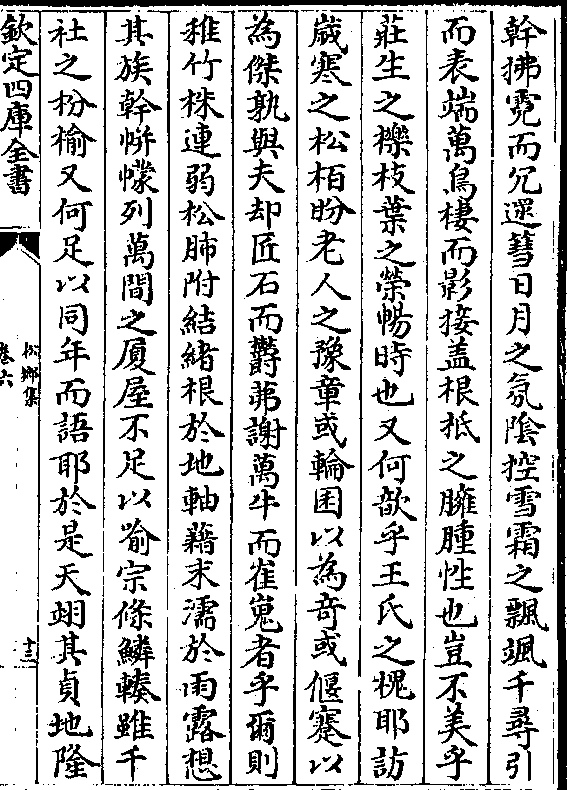 幹拂霓而冗還彗日月之氛陰控雪霜之飄颯千尋引
而表端萬鳥棲而影接盖根柢之臃腫性也豈不美乎
莊生之櫟枝葉之榮暢時也又何歆乎王氏之槐耶訪
歲寒之松栢盼老人之豫章或輪囷以為奇或偃蹇以
為傑孰與夫却匠石而欝茀謝萬牛而崔嵬者乎爾則
稚竹株連弱松肺附結緒根於地軸藉末濡於雨露想
其族幹帡幪列萬間之厦屋不足以喻宗條鱗轃雖千
社之枌榆又何足以同年而語耶於是天翊其貞地隆
欽定四庫全書
松鄉集
卷六
十三